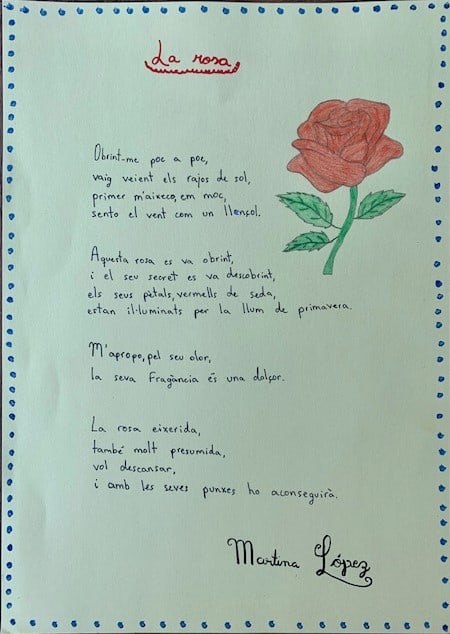 La rosa
Obrint-me poc a poc,
vaig veient els rajos de sol,
primer m'aixeco, em moc,
sento el vent com un llençol.
Aquesta rosa es va obrint,
i el seu secret es va descobrint,
els seus pètals, vermells de seda,
estan il·luminats per la llum de primavera.
M'apropo, pel seu olor,
la seva Fragància és una dolçor.
La rosa eixerida,
també molt presumida,
vol descansar,
i amb les seves punxes ho aconseguirà.
Martina López